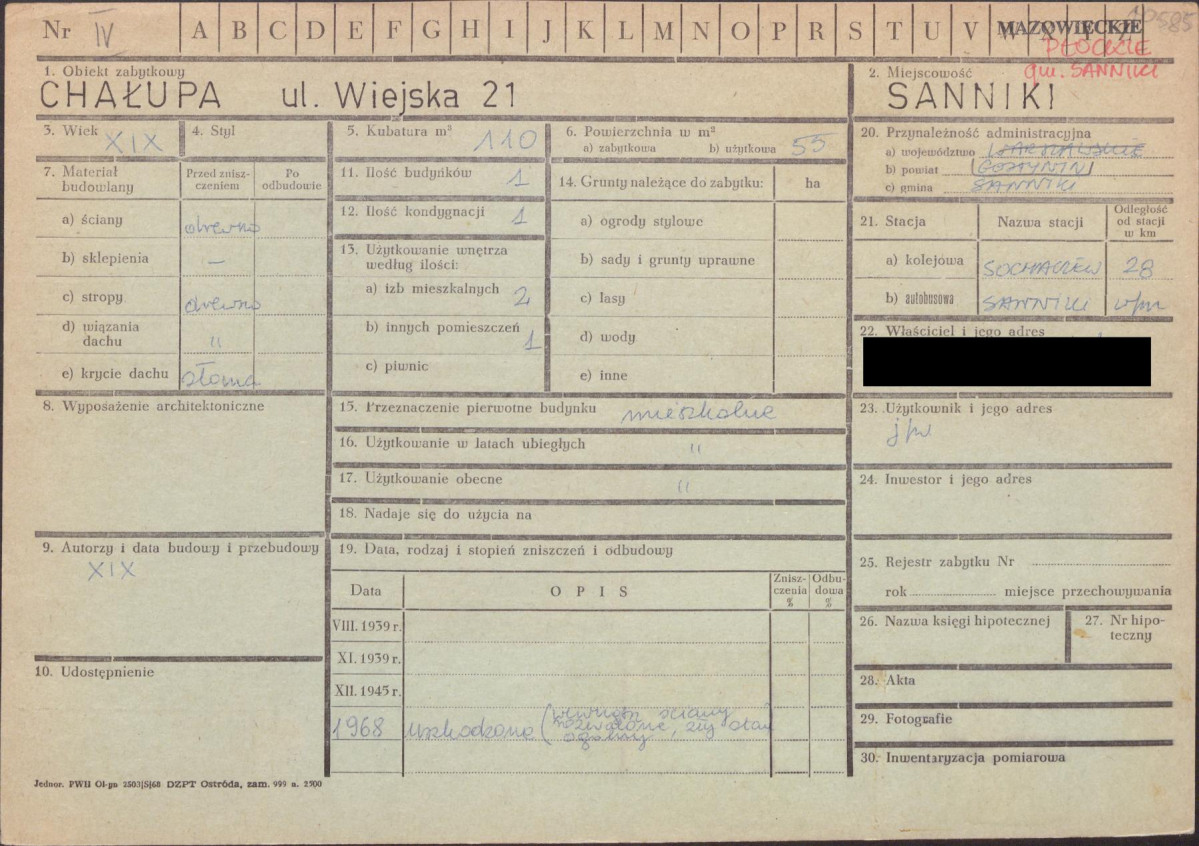 Nr IV A B C D E F G H I J K L M N O P R S T U V MAZOWIECKIE
PŁOCKIE
gm. SANNIKI
1. Obiekt zabytkowy
CHAŁUPA ul. Wiejska 21
2. Miejscowość
SANNIKI
3. Wiek XIX
4. Styl
5. Kubatura m³ 110
6. Powierzchnia w m²
a) zabytkowa b) użytkowa 55
7. Materiał budowlany
Przed zniszczeniem
Po odbudowie
a) ściany drewno
b) sklepienia –
c) stropy drewno
d) wiązania dachu "
e) krycie dachu słoma
8. Wyposażenie architektoniczne
9. Autorzy i data budowy i przebudowy
XIX
10. Udostępnienie
11. Ilość budynków 1
12. Ilość kondygnacji 1
13. Użytkowanie wnętrza
według ilości:
a) izb mieszkalnych 2
b) innych pomieszczeń 1
c) piwnic
14. Grunty należące do zabytku: ha
a) ogrody stylowe
b) sady i grunty uprawne
c) lasy
d) wody
e) inne
15. Przeznaczenie pierwotne budynku mieszkalne
16. Użytkowanie w latach ubiegłych "
17. Użytkowanie obecne "
18. Nadaje się do użycia na
19. Data, rodzaj i stopień zniszczeń i odbudowy
Data OPIS Zniszczenia % Odbudowa %
VIII. 1939 r.
XI. 1939 r.
XII. 1945 r.
1968 uszkodzona (wewnątrz ściany
stan
20. Przynależność administracyjna
a) województwo WARSZAWSKIE
b) powiat GOSTYNIN
c) gmina SANNIKI
21. Stacja Nazwa stacji Odległość od stacji w km
a) kolejowa SOCHACZEW 28
b) autobusowa SANNIKI w/m
22. Właściciel i jego adres
23. Użytkownik i jego adres
jw
24. Inwestor i jego adres
25. Rejestr zabytku Nr
rok miejsce przechowywania
26. Nazwa księgi hipotecznej
27. Nr hipoteczny
28. Akta
29. Fotografie
30. Inwentaryzacja pomiarowa
Jednor. PWH Ol-yn 2503|S|68 DZPT Ostróda, zam. 999 a. 2500